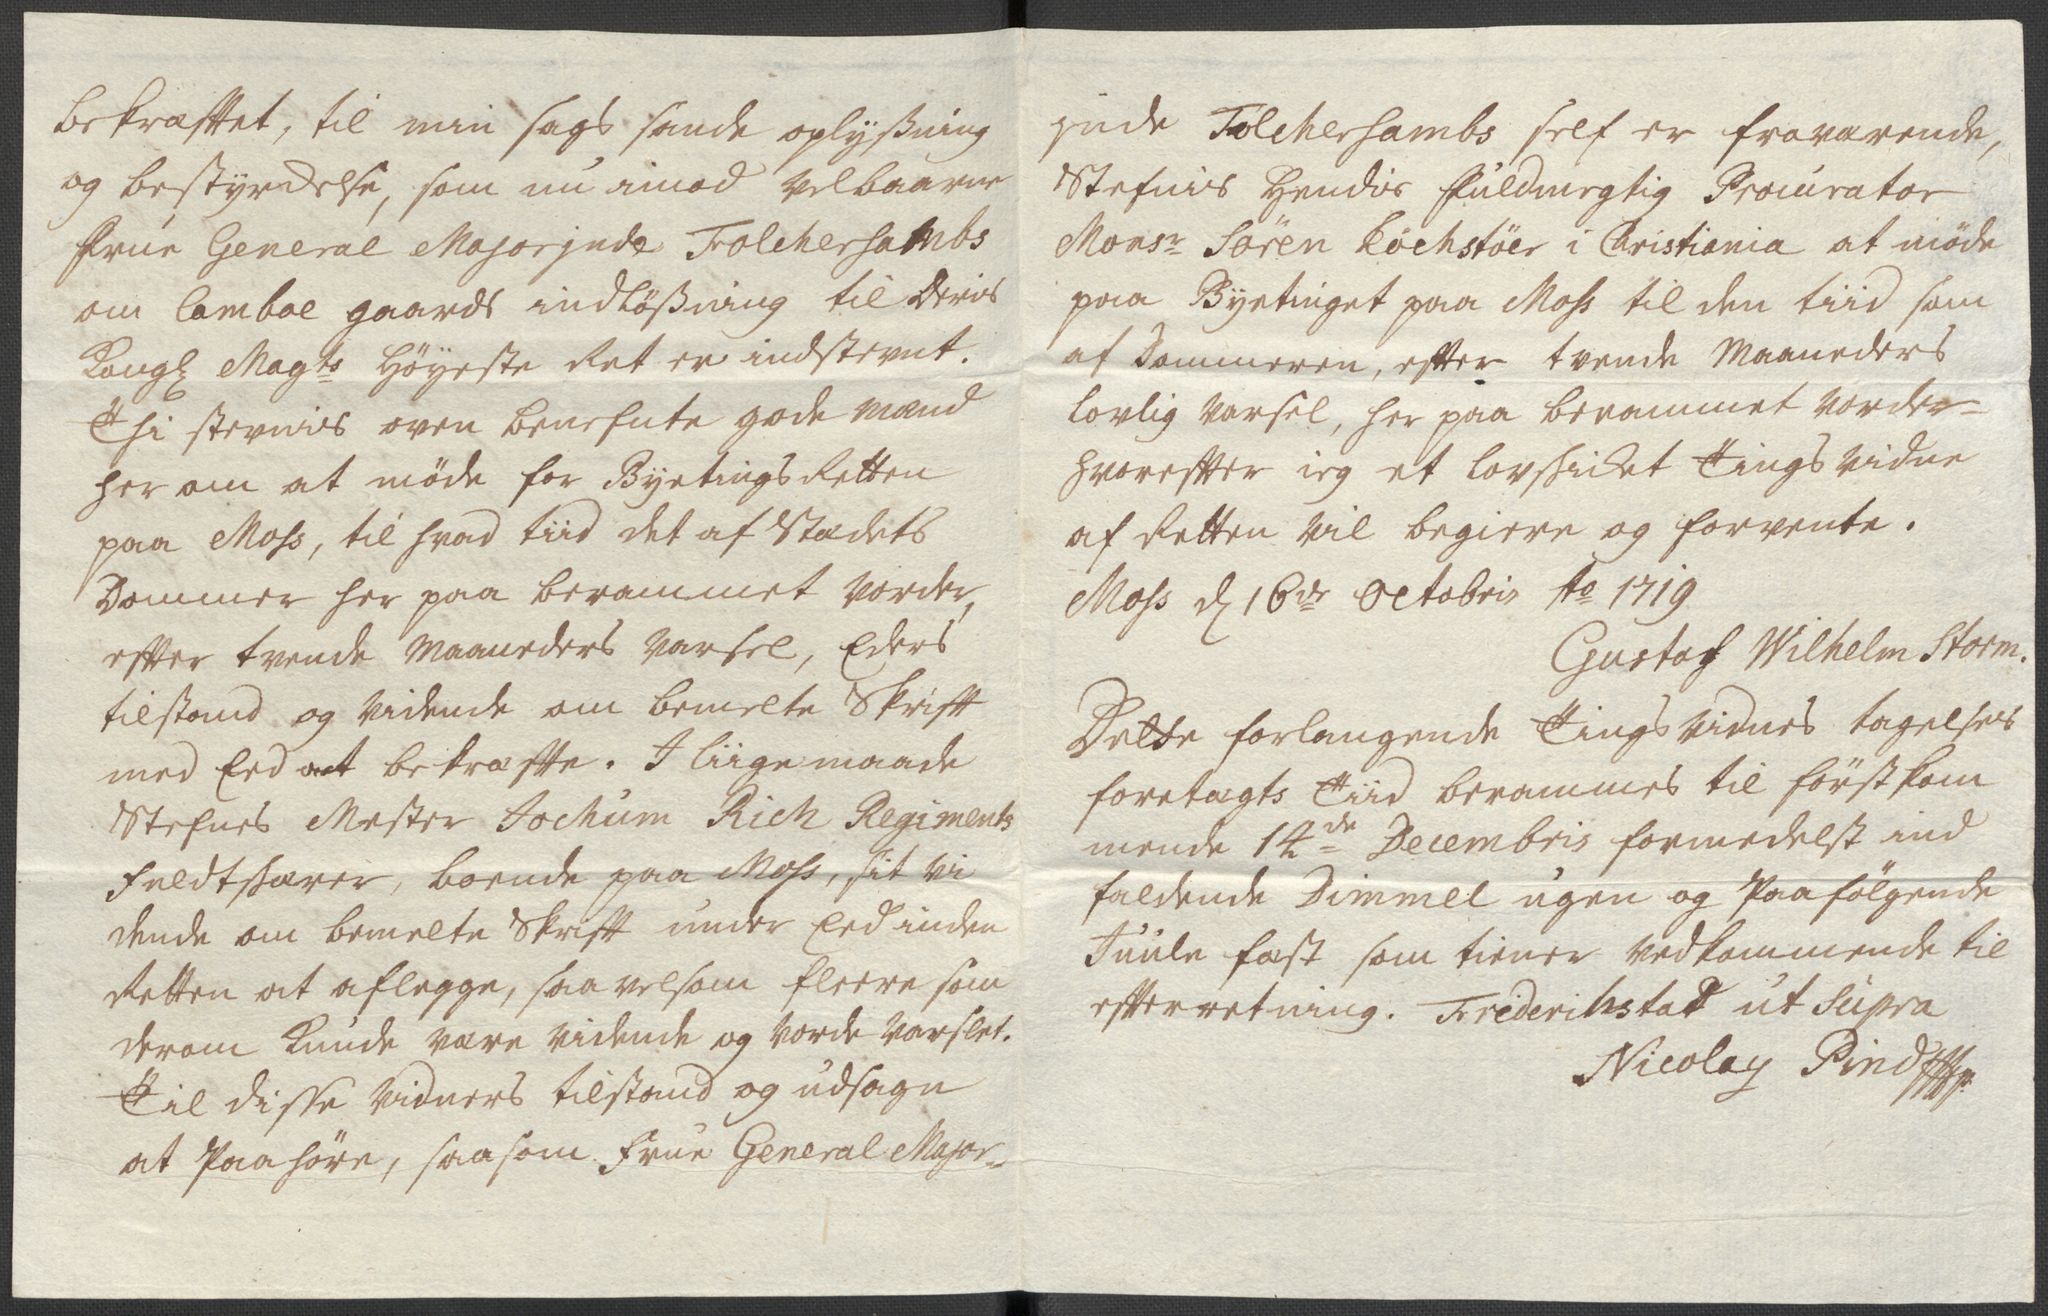 bekræfftet, til min sags sande oplyßning
og bestyrckelse, som nu imod Velbaarne
Frue General Majorjnde Trolchershambs
om Camboe gaards indlößning til Deris
Kongl Mayts Höyeste Ret er indstevnt.
Thi stevnis oven benefnte gode mænd
her om at möde for Byetings Retten
paa Moss, til hvad tiid det af Stædets
Dommer her paa berammet vorder,
effter tvende Maaneders varsel, Eders
tilstand og vidende om bemelte Skrifft
med Eed at bekræffte. I liige maade
Stefnes Mester Jochum Rich Regiments
feldtskærer, boende paa Moss, sit vi
dende om bemelte Skrifft under Eed inden
Retten at aflegge, saavelsom fleere som
derom kunde være vidende og vorde varslet.
Til disse vidners tilstand og udsagn
at Paahöre, saasom Frue General Major-
jnde Tolchershambs self er fraværende,
Stefnis Hendis fuldmegtig Procurator
Monsr Sören Kochstöer i Christiania at möde
paa Byetinget paa Moss til den tiid som
af Dommeren, effter tvende Maaneders
lovlig varsel, her paa berammet vorder-
hvoreffter ieg et lovskicket Tings vidne
af Retten vil begiere og forvente.
Moss d 16de Octobris Ao 1719
Gustaf Wilhelm Storm.
Dette forlangende Tings vidnes tagelses
foretagts Tiid berammes til förstkom
mende 14de Decembris formedelst ind
faldende Dimmel ugen og Paafölgende
Juule fæst som tiener vedkommende til
effterretning. Friderichstad ut Supra
Nicolay Pind